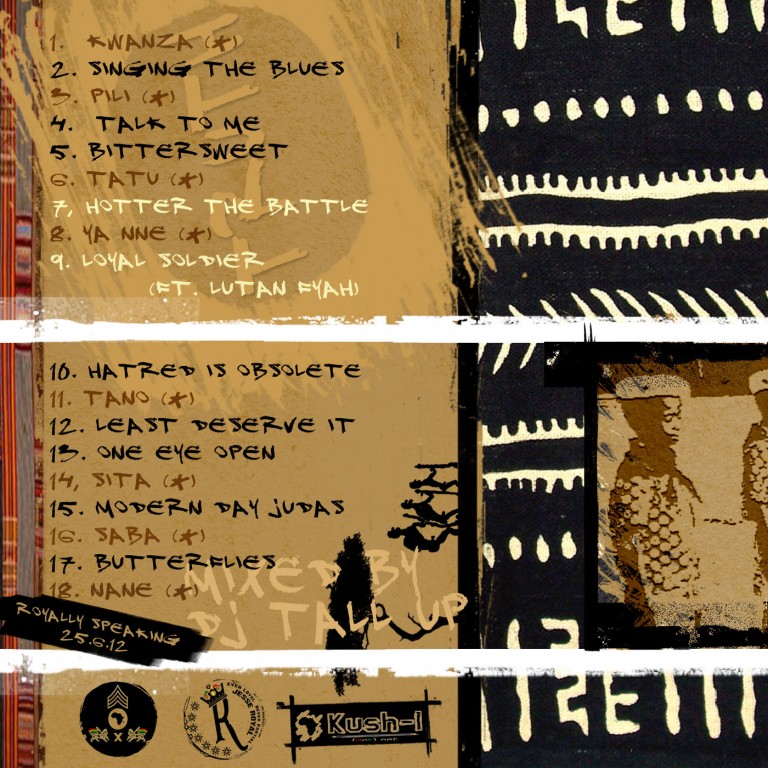 1. KWANZA (*)
2. SINGING THE BLUES
3. PILI (*)
4. TALK TO ME
5. BITTERSWEET
6. TATU (*)
7, HOTTER THE BATTLE
8. YA NNE (*)
9. LOYAL SOLDIER
(FT. LUTAN FYAH)
10. HATRED IS OBSOLETE
11. TANO (*)
12. LEAST DESERVE IT
13. ONE EYE OPEN
14, SITA (*)
15. MODERN DAY JUDAS
16. SABA (*)
17. BUTTERFLIES
18. NANE (*)
MIXED BY
DJ TALL UP
ROYALLY SPEAKING
25.6.12
X
R
JESSE ROYAL
Kush-I